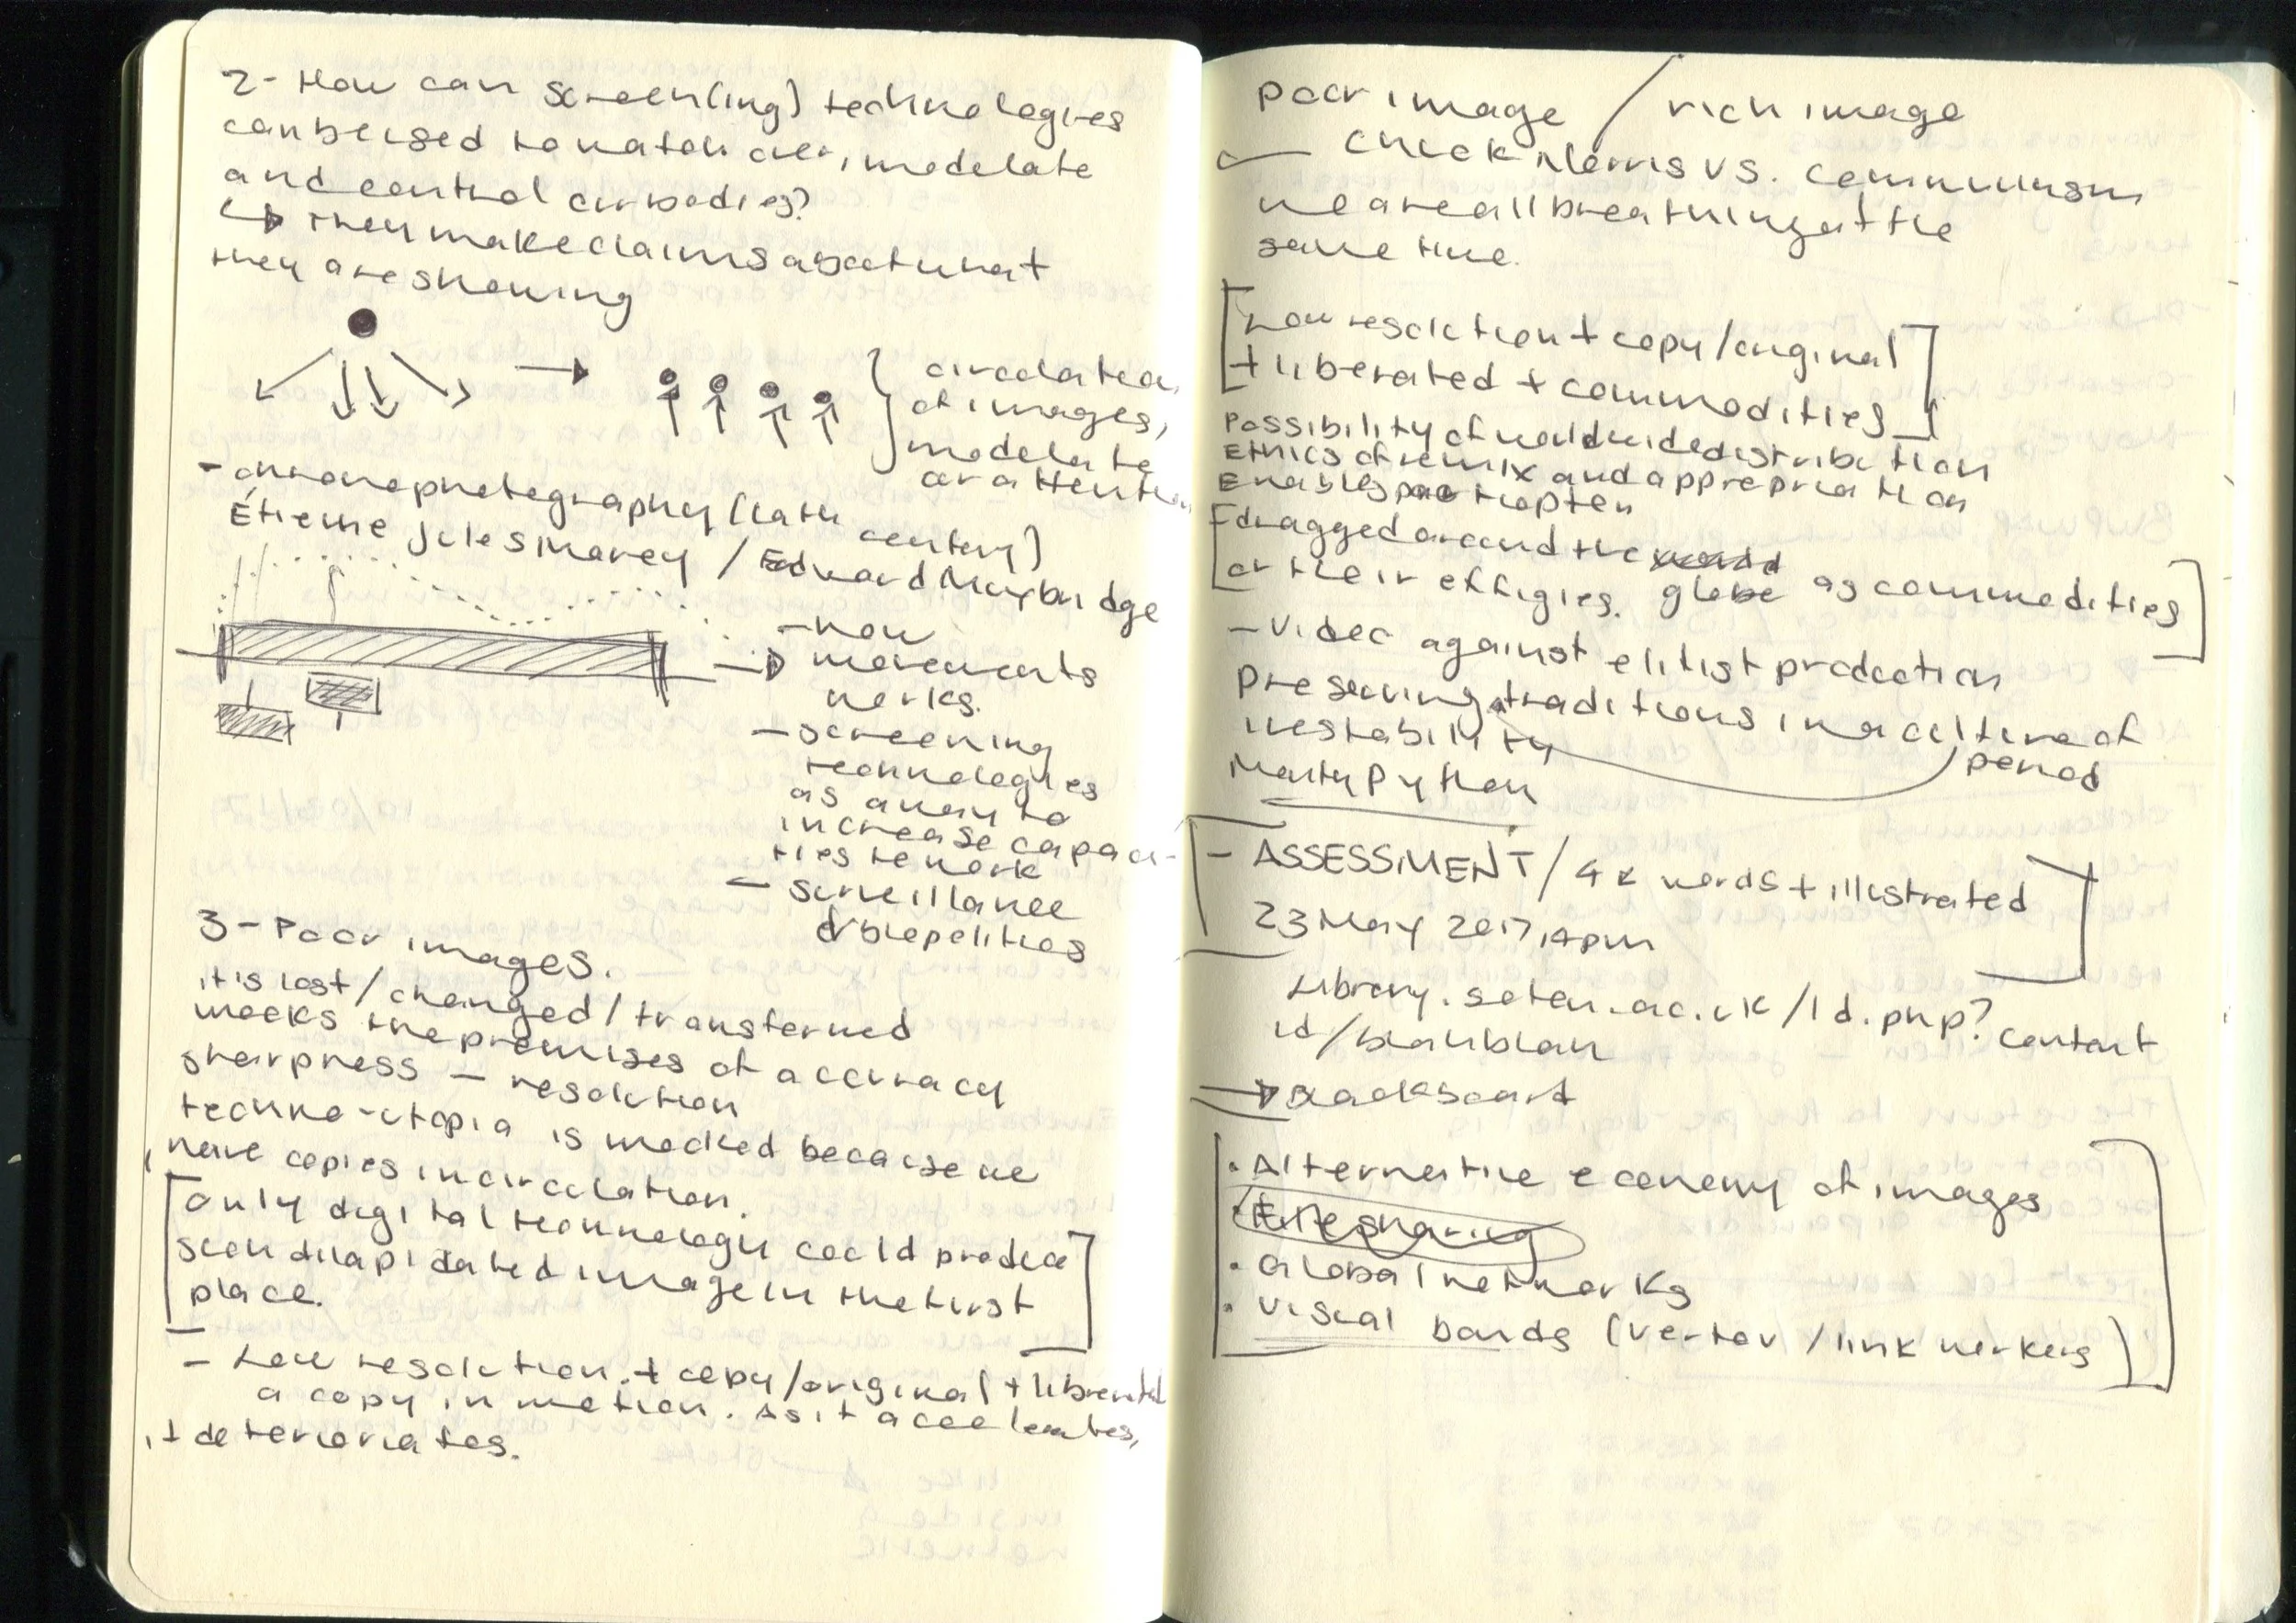 2- How can screen(ing) technologies
can be used to watch over, modulate
and control our bodies?
↳ they make claims about what
they are showing
→ } circulation
of images,
modulate
our attention
- chronophotography (late
century)
Étienne Jules Marey / Edward Muybridge
- how
→ movements
works.
- screening
technologies
as a way to
increase capaci-
ties to work
- surveillance
& biopolitics
3- Poor images.
it is lost / changed / transformed
mocks the promises of accuracy
sharpness - resolution
techno-utopia is mocked because we
have copies in circulation.
[Only digital technology could produce
such dilapidated image in the first
place.]
- Low resolution + copy/original + liberated
a copy in motion. As it accelerates,
it deteriorates.
poor image / rich image
check Norris vs. communism
we are all breathing at the
same time.
[Low resolution + copy/original
+ liberated + commodities]
Possibility of worldwide distribution
Ethics of remix and appropriation
Enables
[dragged around the globe as commodities
or their effigies.]
- Video against elitist production
preserving traditions in a culture of
instability period
Monty Python
[- ASSESSMENT / 4k words + illustrated
23 May 2017, 4pm]
Library.soton.ac.uk/ld.php? content
id/blahblah
→ blackboard
[· Alternative economy of images
· File sharing
· Global networks
· Visual bonds (Vertov / link workers)]